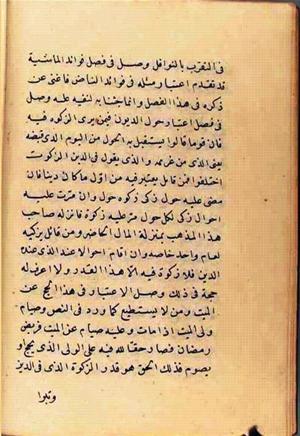 فى التقرب بالنوافل وصل فى فصل فوائد الماشية
قد تقدم اعتبار مثله فى فوائد الناض فاغنى عن
ذكره فى هذا الفصل وانما جئنا به لننبه عليه وصل
فى فصل اعتبار حول الديون فيمن يرى الزكوه فيه
فان قوما قالوا يستقبل به الحول من اليوم الذى قبضه
يعنى الذى من غريمه والذى يقول فى الدين الزكوت
اختلفوا فمن قائل يعتبر فيه من اول ما كان دينا فان
مضى عليه حول زكى زكوة حول وان مرت عليه
احوال زكى لكل حول مر عليه زكوة فانزله صاحب
هذا المذهب بمنزلة المال الحاضر ومن قائل يزكيه
لعام واحد خاصة وان اقام احوالا عند الذى عنده
الدين فلا زكوة فيه الا هذا القدر ولا اعرف له
حجة فى ذلك وصل الاعتبار فى هذا الحج عن
الميت ومن لا يستطيع كما ورد فى النص وصيام
ولى الميت اذا مات وعليه صيام عن الميت فرض
رمضان فصار حقا لله فيه على الولى الذى يحج او
يصوم فذلك الحق هو قدر الزكوة الذى فى الدين
وتبرا